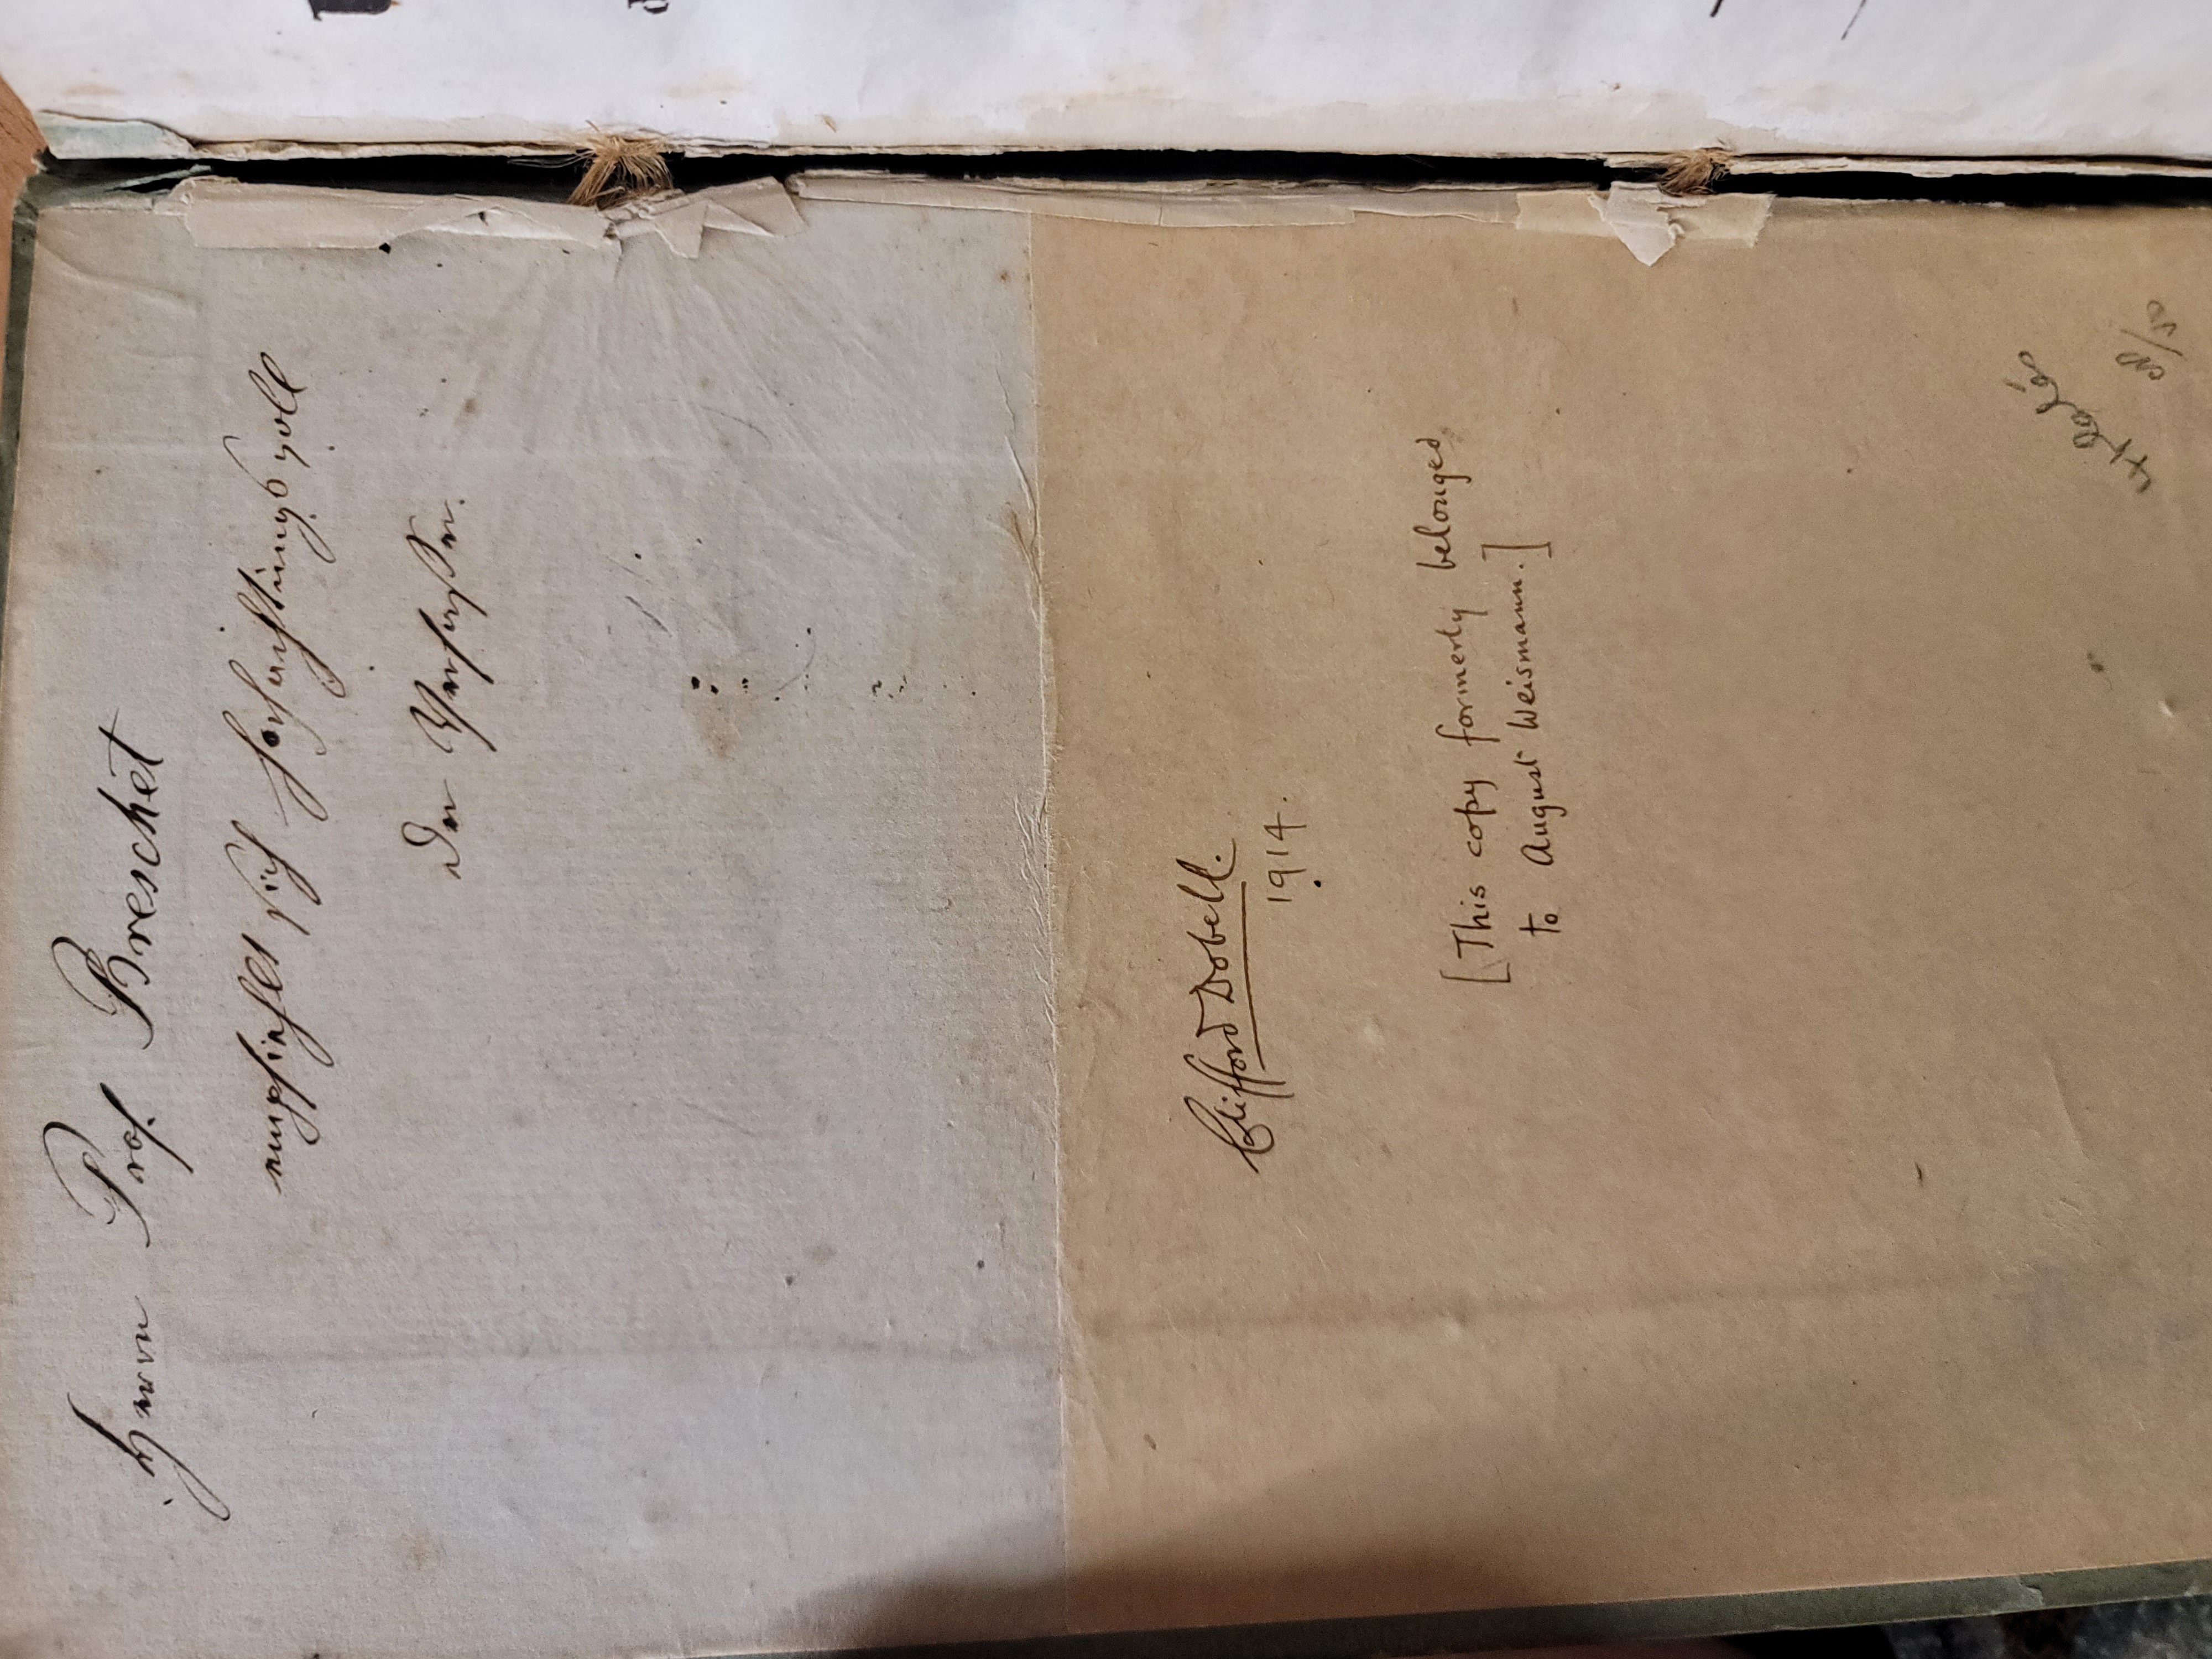 Herrn Prof. Breschet
empfiehlt sich hochachtungsvoll
der Verfasser.
Clifford Dobell.
1914.
[This copy formerly belonged
to August Weismann.]
4 plates